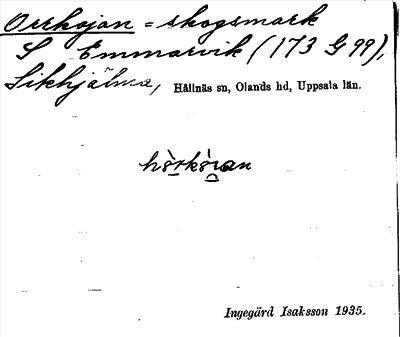 Orrkojan = skogsmark
S Emmarvik (173 G 99),
Sikhjälma, Hållnäs sn, Olands hd, Uppsala län.
hò̱rkò̱ran
Ingegärd Isaksson 1935.